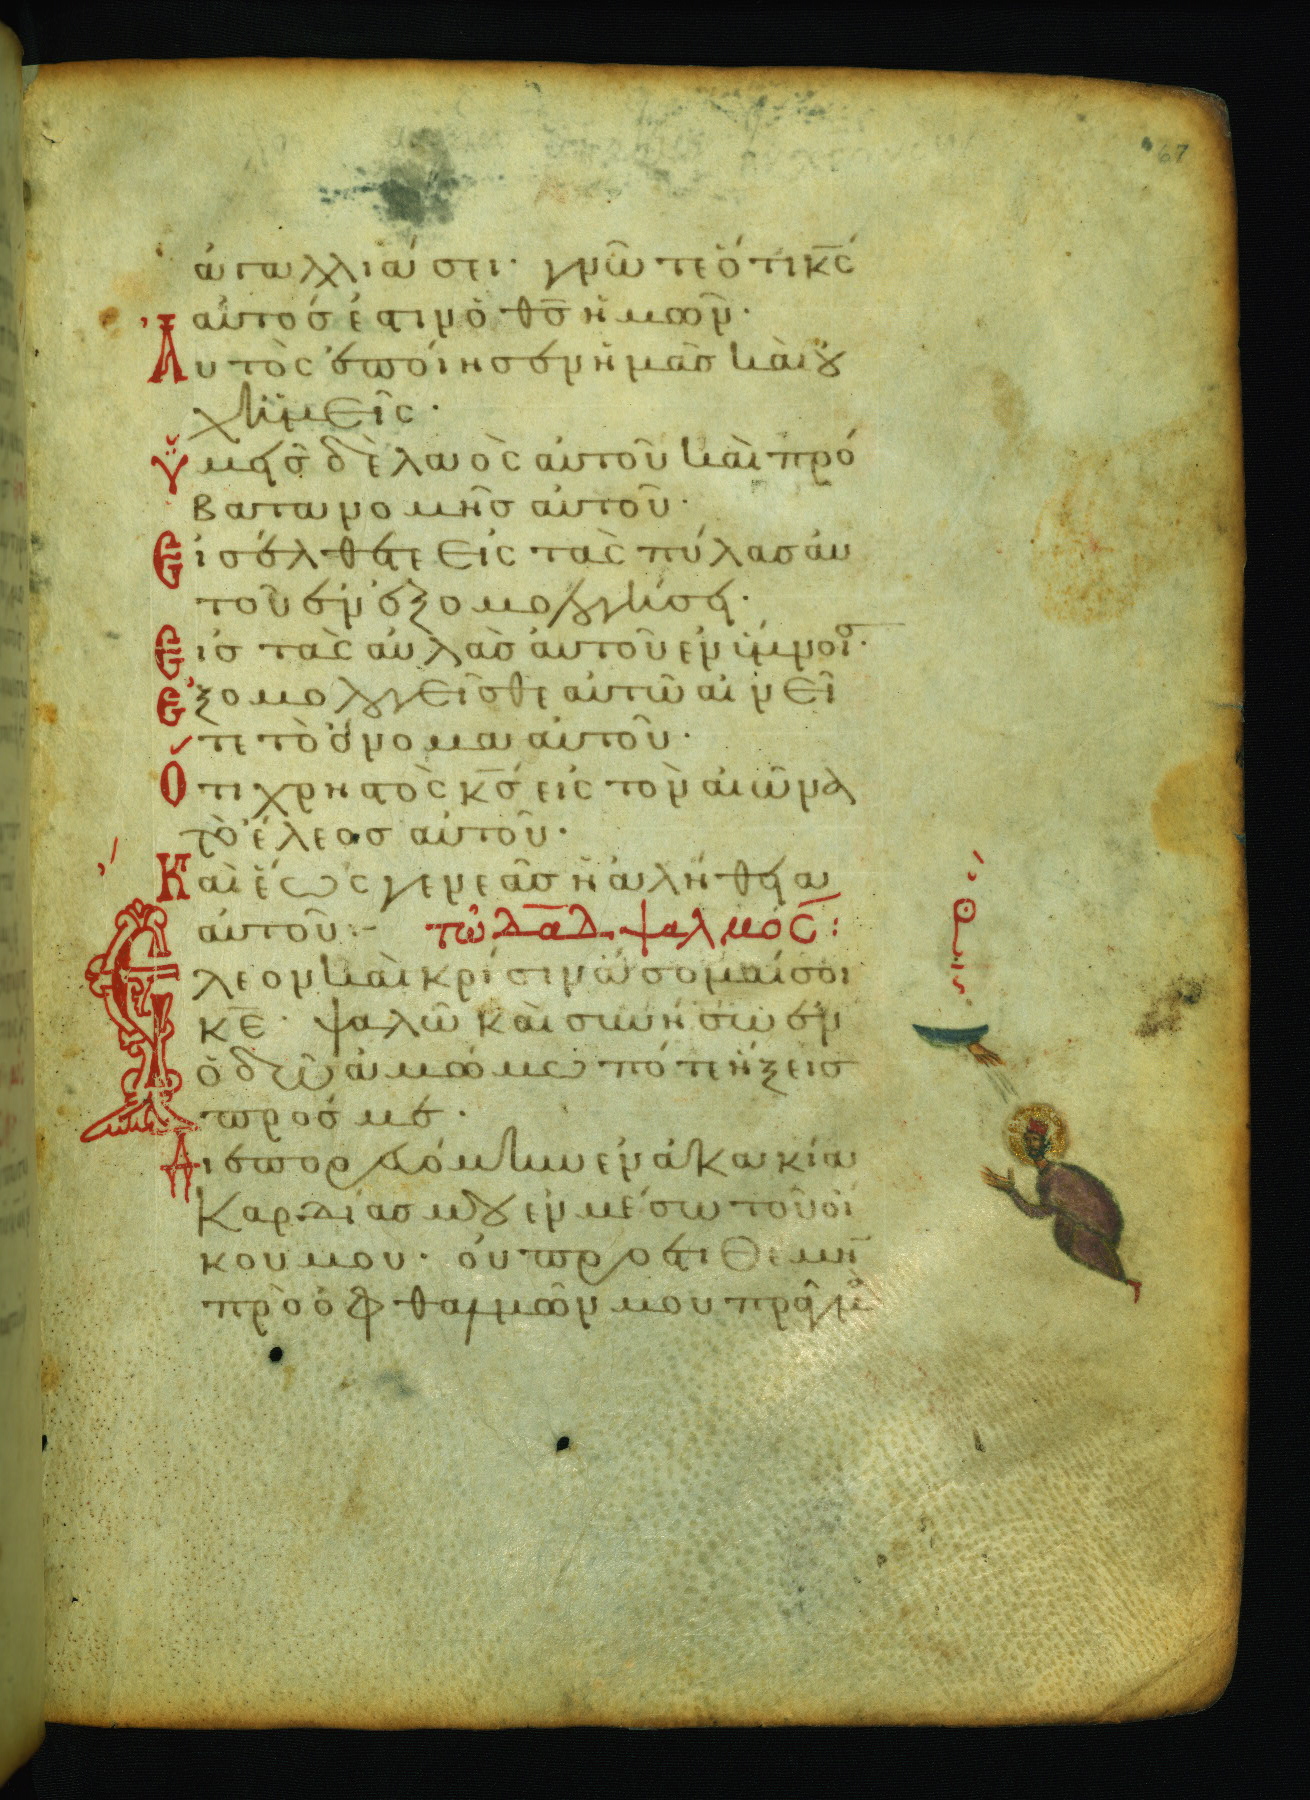 67
ἀγαλλιάσει· γνῶτε ὅτι κ̅ς
αὐτός ἐστιν ὁ θ̅ς ἡμῶν·
Αὐτὸς ἐποίησεν ἡμᾶς καὶ οὐ
χ ἡμεῖς·
Ὑμεῖς δὲ λαὸς αὐτοῦ καὶ πρό
βατα νομῆς αὐτοῦ·
Εἰσέλθετε εἰς τὰς πύλας αὐ
τοῦ ἐν ἐξομολογήσει·
Εἰς τὰς αὐλὰς αὐτοῦ ἐν ὕμνοις·
Ἐξομολογεῖσθε αὐτῶ αἰνεῖ
τε τὸ ὄνομα αὐτοῦ·
Ὅτι χρηστὸς κ̅ς εἰς τὸν αἰῶνα
τὸ ἔλεος αὐτοῦ·
Καὶ ἕως γενεᾶς ἡ ἀλήθεια
αὐτοῦ:– τῶ δ̅α̅δ̅ ψαλμός:
ρ
Ἔλεον καὶ κρίσιν ἄσομαί σοι
κ̅ε· ψαλῶ καὶ συνήσω ἐν
ὁδῶ ἀμώμω πότε ἥξεις
πρός με·
Διεπορευόμην ἐν ἀκακία
καρδίας μου ἐν μέσω τοῦ οἴ
κου μου· οὐ προεθέμην
πρὸ ὀφθαλμῶν μου πρᾶγμα